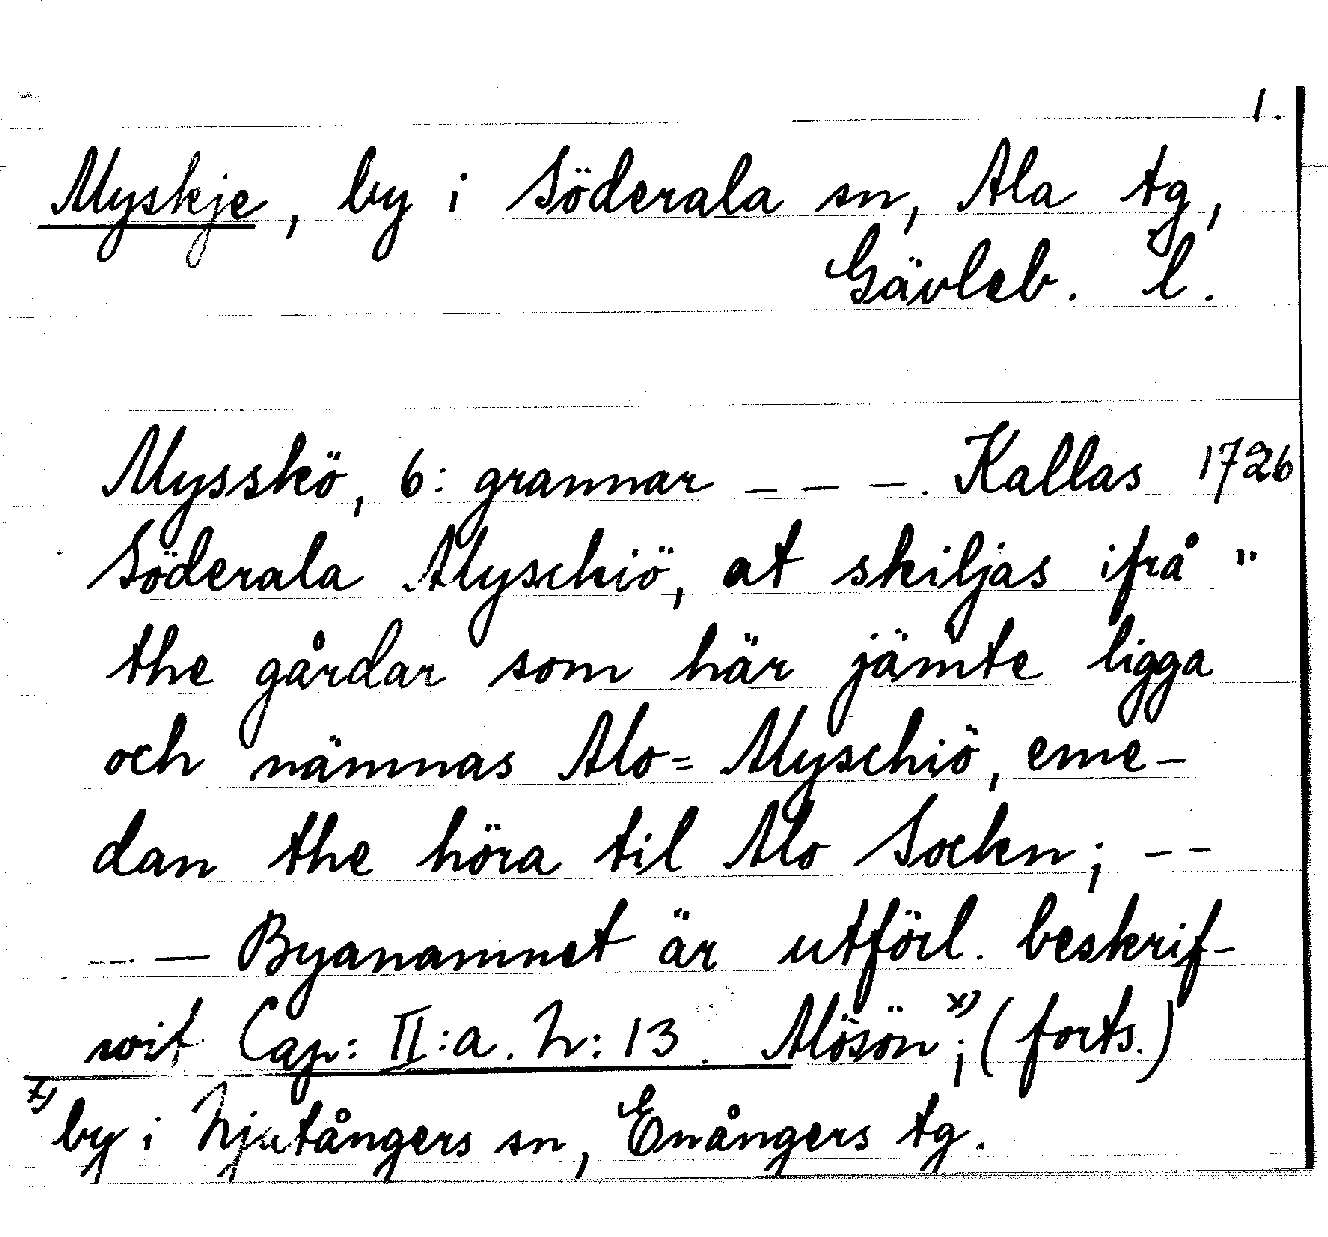 1.
Myskje, by i Söderala sn, Ala tg,
Gävleb. l.
Mysskö, 6: grannar – – –. Kallas 1726
Söderala Myschiö, at skiljas ifrå "
the gårdar som här jämte ligga
och nämnas Mo= Myschiö, eme-
dan the höra til Mo Sockn; – –
– – Byanamnet är utförl. beskrif-
wit Cap: II:a. N: 13. Mösön x); (forts.)
x) by i Njutångers sn, Enångers tg.